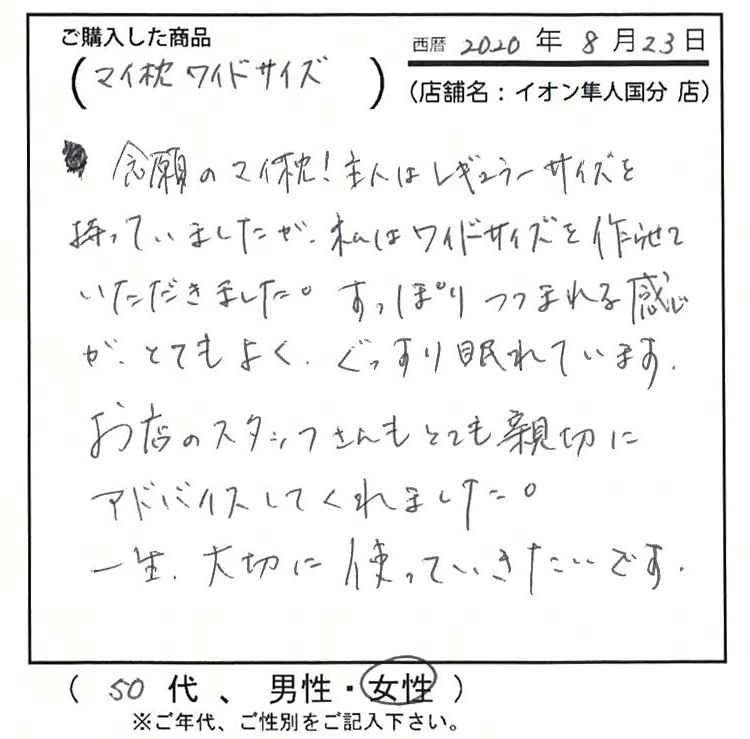 ご購入した商品
西暦 2020 年 8 月 23 日
(マイ枕 ワイドサイズ)
(店舗名：イオン隼人国分 店)
念願のマイ枕！主人はレギュラーサイズを
持っていましたが、私はワイドサイズを作らせて
いただきました。すっぽりつつまれる感じ
が、とてもよく、ぐっすり眠れています。
お店のスタッフさんもとても親切に
アドバイスしてくれました。
一生、大切に使っていきたいです。
( 50 代 、 男性・女性 )
※ご年代、ご性別をご記入下さい。